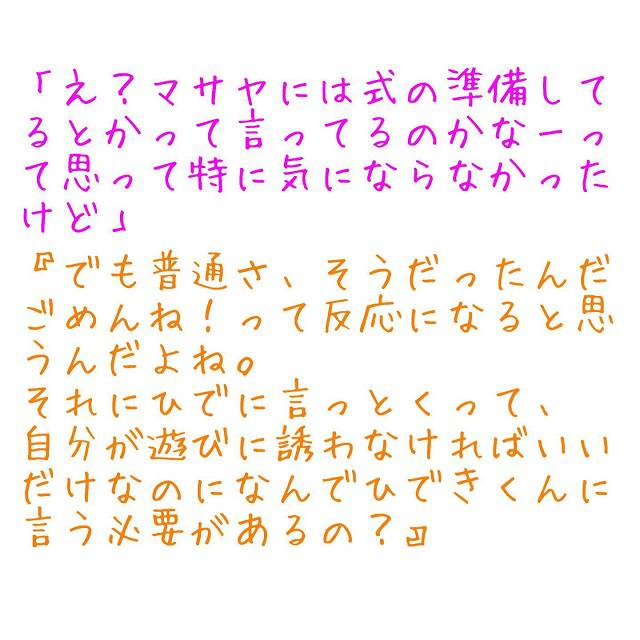 「え?マサヤには式の準備して
るとかって言ってるのかなーっ
て思って特に気にならなかった
けど」
『でも普通さ、そうだったんだ
ごめんね!って反応になると思
うんだよね。
それにひでに言っとくって、
自分が遊びに誘わなければいい
だけなのになんでひできくんに
言う必要があるの?』